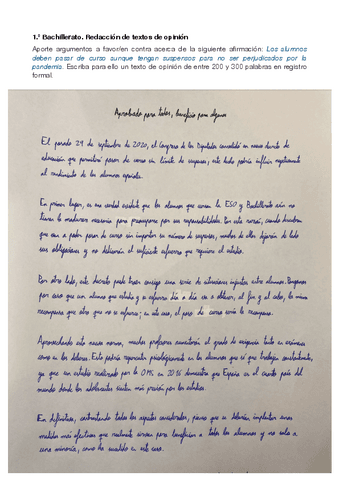 1.º Bachillerato. Redacción de textos de opinión
Aporte argumentos a favor/en contra acerca de la siguiente afirmación: Los alumnos
deben pasar de curso aunque tengan suspensos para no ser perjudicados por la
pandemia. Escriba para ello un texto de opinión de entre 200 y 300 palabras en registro
formal.
Aprobado para todos, beneficio para algunos
El pasado 29 de septiembre de 2020, el Congreso de los Diputados consolidó un nuevo decreto de
educación que permitirá pasar de curso sin límite de suspensos, este hecho podría influir negativamente
al rendimiento de los alumnos españoles.
En primer lugar, es una verdad evidente que los alumnos que cursan la ESO y Bachillerato aún no
tienen la madurez necesaria para preocuparse por sus responsabilidades. Por esta razón, cuando descubran
que van a poder pasar de curso sin importar su número de suspensos, muchos de ellos dejarán de lado
sus obligaciones y no realizarán el suficiente esfuerzo que requiere el estudio.
Por otro lado, este decreto puede traer consigo una serie de situaciones injustas entre alumnos. Pongamos
por caso que un alumno que estudia y se esfuerza día a día va a obtener, al fin y al cabo, la misma
recompensa que otro que no se esfuerza; en este caso, el peor de curso sería la recompensa.
Aprovechando esta nueva norma, muchos profesores aumentarán el grado de exigencia tanto en exámenes
como en los deberes. Esto podría repercutir psicológicamente en los alumnos que sí que trabajan constantemente,
ya que un estudio realizado por la OMS en 2018 demuestra que España es el cuarto país del
mundo donde los adolescentes sienten más presión por los estudios.
En definitiva, contrastando todos los aspectos considerados, pienso que se deberían implantar unas
medidas más efectivas que realmente sirvan para beneficiar a todos los alumnos y no solo a
una minoría, como ha sucedido en este caso.